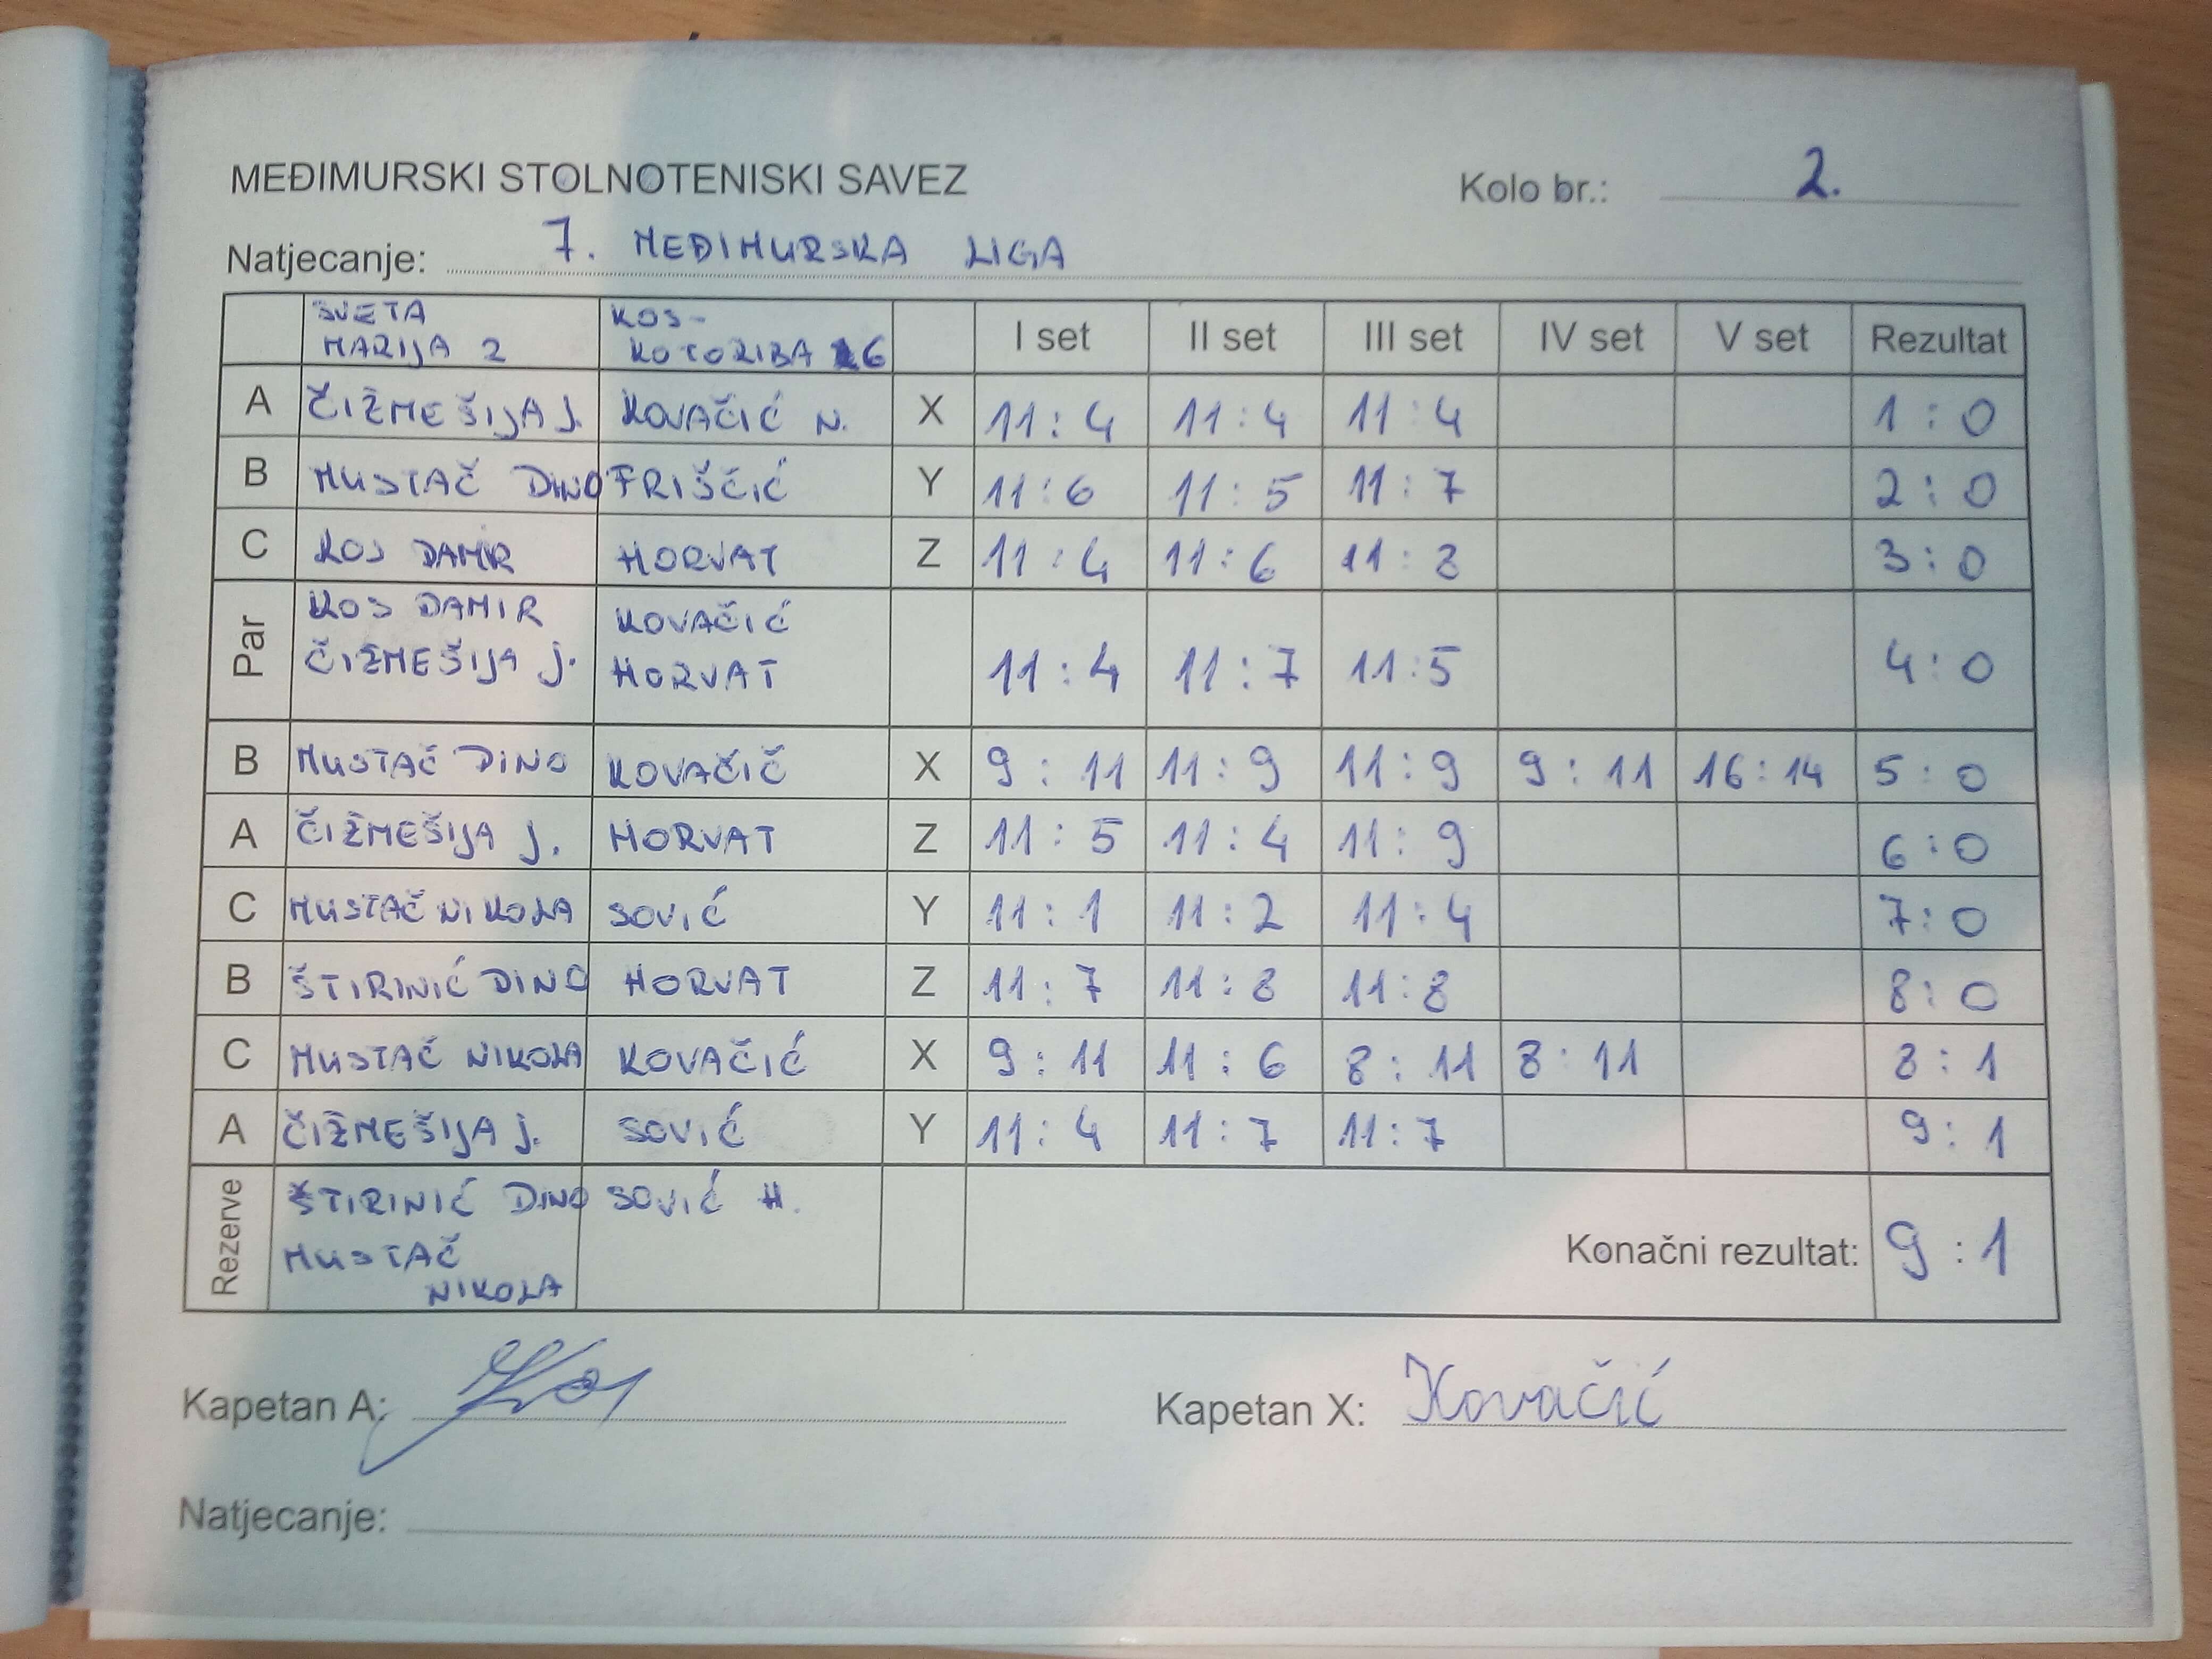 MEĐIMURSKI STOLNOTENISKI SAVEZ
Kolo br.: 2.
Natjecanje: 7. MEĐIMURSKA LIGA
SVETA MARIJA 2 KOS-KOTORIBA 6 I set II set III set IV set V set Rezultat
A ČIŽMEŠIJA J. KOVAČIĆ N. X 11:4 11:4 11:4 1:0
B MUSTAČ DINO FRIŠČIĆ Y 11:6 11:5 11:7 2:0
C KOS DAMIR HORVAT Z 11:4 11:6 11:8 3:0
Par KOS DAMIR KOVAČIĆ
ČIŽMEŠIJA J. HORVAT 11:4 11:7 11:5 4:0
B MUSTAČ DINO KOVAČIČ X 9:11 11:9 11:9 9:11 16:14 5:0
A ČIŽMEŠIJA J. HORVAT Z 11:5 11:4 11:9 6:0
C MUSTAČ NIKOLA SOVIĆ Y 11:1 11:2 11:4 7:0
B ŠTIRINIĆ DINO HORVAT Z 11:7 11:8 11:8 8:0
C MUSTAČ NIKOLA KOVAČIĆ X 9:11 11:6 8:11 8:11 8:1
A ČIŽMEŠIJA J. SOVIĆ Y 11:4 11:7 11:7 9:1
Rezerve ŠTIRINIĆ DINO SOVIĆ H.
MUSTAČ
NIKOLA
Konačni rezultat: 9:1
Kapetan A: Kos Kapetan X: Kovačić
Natjecanje: